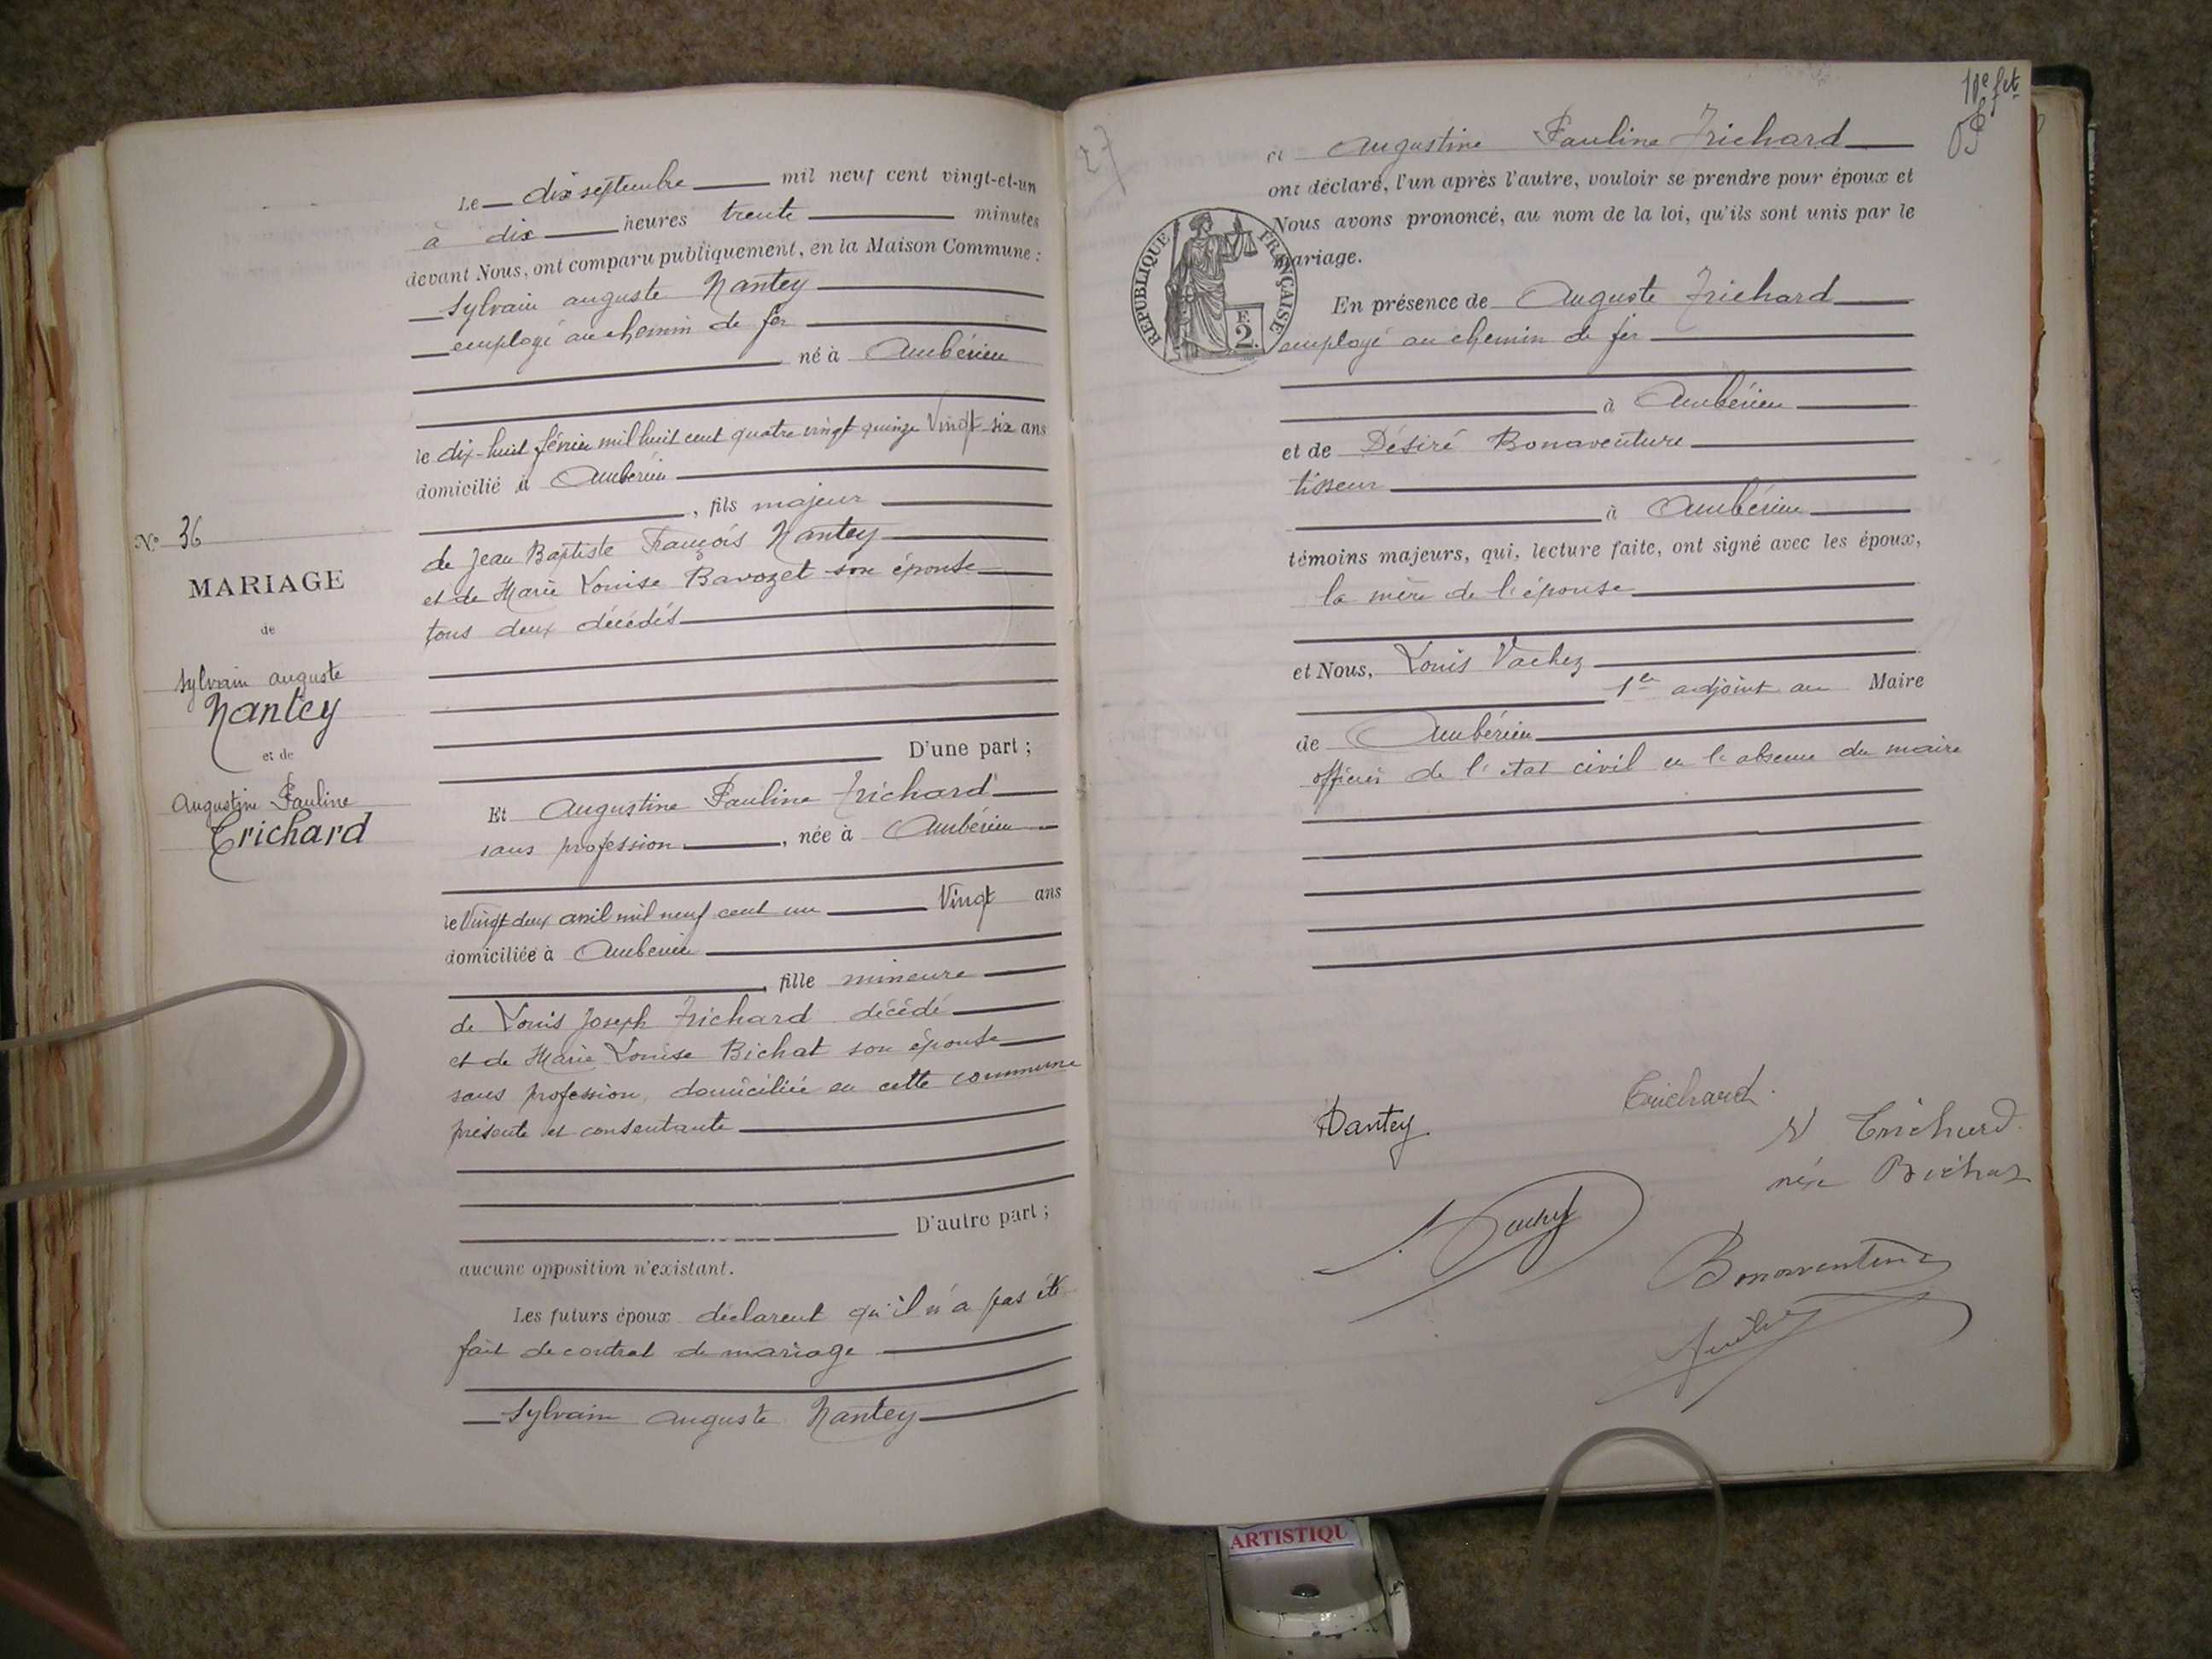 Le dix septembre mil neuf cent vingt-et-un
à dix heures trente minutes
devant Nous, ont comparu publiquement, en la Maison Commune :
Sylvain auguste Nantey
employé au chemin de fer
né à Ambérieu
le dix-huit février mil huit cent quatre vingt quinze Vingt-six ans
domicilié à Ambérieu
, fils majeur
de Jean Baptiste François Nantey
et de Marie Louise Bavozet son épouse
tous deux décédés
D'une part ;
N° 36
MARIAGE
de
Sylvain auguste
Nantey
et de
Augustine Pauline
Trichard
Et Augustine Pauline Trichard
sans profession, née à Ambérieu
le Vingt deux avril mil neuf cent un Vingt ans
domiciliée à Ambérieu
, fille mineure
de Louis Joseph Trichard décédé
et de Marie Louise Bichat son épouse
sans profession, domiciliée en cette commune
présente et consentante
D'autre part ;
aucune opposition n'existant.
Les futurs époux déclarent qu'il n'a pas été
fait de contrat de mariage
Sylvain auguste Nantey
27
et Augustine Pauline Trichard
ont déclaré, l'un après l'autre, vouloir se prendre pour époux et
Nous avons prononcé, au nom de la loi, qu'ils sont unis par le
mariage.
REPUBLIQUE FRANÇAISE
F.
2.
En présence de Auguste Trichard
employé au chemin de fer
à Ambérieu
et de Désiré Bonaventure
tisseur
à Ambérieu
témoins majeurs, qui, lecture faite, ont signé avec les époux,
la mère de l'épouse
et Nous, Louis Vachez
1er adjoint au Maire
de Ambérieu
officier de l'état civil en l'absence du maire
Trichard
Nantey
Trichard
née Bichat
Bonaventure
ARTISTIQU